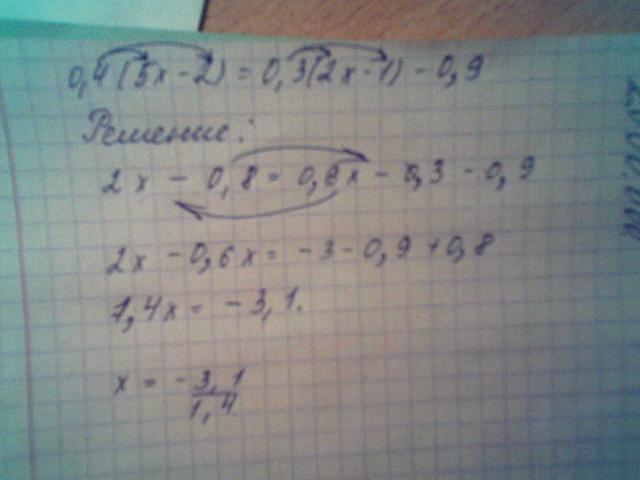 0,4(5x-2) = 0,3(2x-1) - 0,9
Решение:
2x - 0,8 = 0,6x - 0,3 - 0,9
2x - 0,6x = -3 - 0,9 + 0,8
1,4x = -3,1.
x = - 3,1
1,4